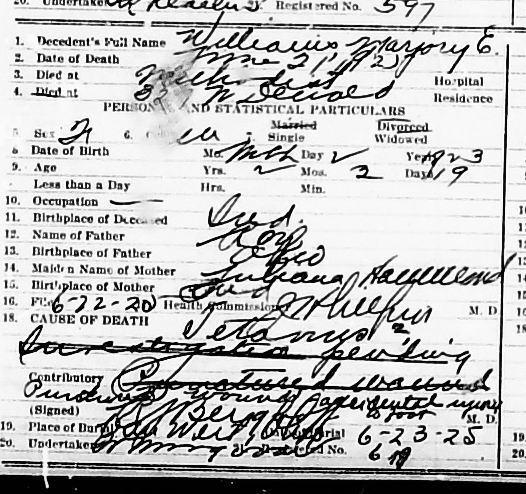 20. Undertaker Registered No. 597
1. Decedent's Full Name Williams Marjory E.
2. Date of Death June 21, 1925
3. Died at Methodist Hospital
4. Died at W Dewald Residence
PERSONAL AND STATISTICAL PARTICULARS
5. Sex F 6. W Married Single Divorced Widowed
8. Date of Birth Mo. Mch Day 2 Year 1923
9. Age Yrs. 2 Mos. 3 Days 19
Less than a Day Hrs. Min.
10. Occupation —
11. Birthplace of Deceased Ind.
12. Name of Father
13. Birthplace of Father Ohio
14. Maiden Name of Mother Juliana Hammond
15. Birthplace of Mother Ind
16. Filed 6-22-25 Health Commissioner M. D.
18. CAUSE OF DEATH Tetanus
Investigation pending
Contributory Punctured wound
Punctured wound accidental injury
(Signed) to foot M. D.
19. Place of Burial Van Wert Ohio Burial 6-23-25
20. Undertaker No. 619